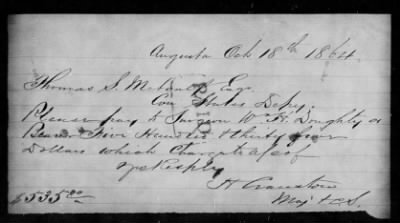 Augusta Oct 18th 1864
Thomas S. Metcalf Esqr
Con States Depy.
Please pay to Surgeon W. H. Doughty or
Bearer Five Hundred & thirty five
Dollars which charge to a/c of
Yrs Respfly
$535.00
Maj + Q.